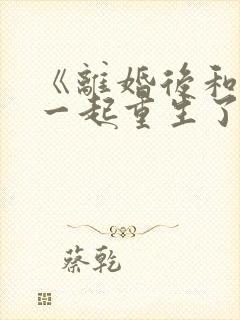 《離婚後和
一起重生了
蔡乾